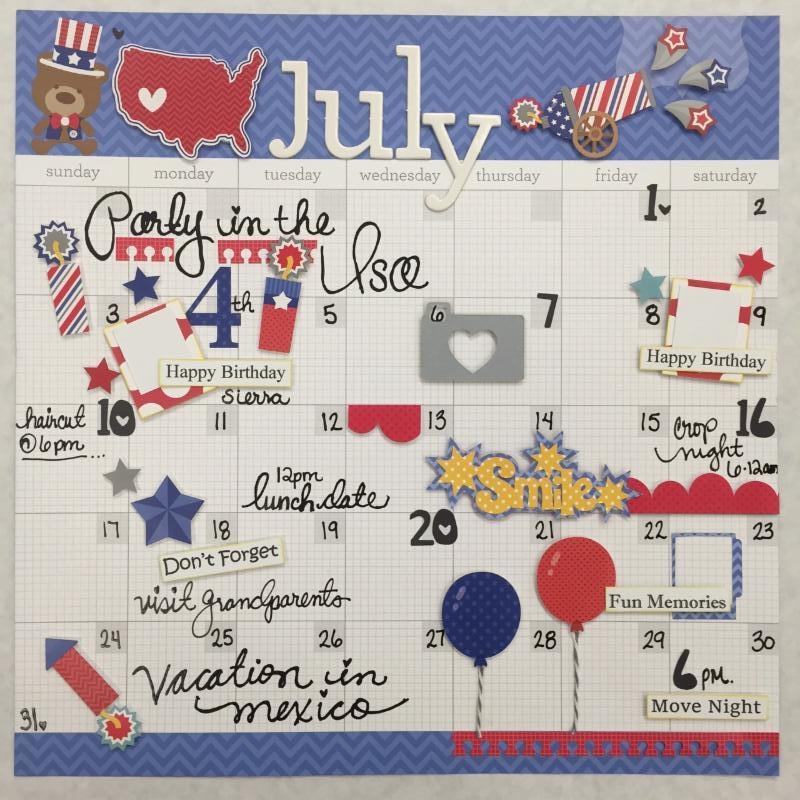 July
sunday monday tuesday wednesday thursday friday saturday
1 2
Party in the
Usa
3 4th 5 6 7 8 9
Happy Birthday
Sierra
Happy Birthday
haircut
@6pm...
10 11 12 13 14 15 16
crop
night
6-12am
12pm
lunch date
Smile
17 18 19 20 21 22 23
Don't Forget
visit grandparents
Fun Memories
24 25 26 27 28 29 30
Vacation in
mexico
6 pm.
Move Night
31